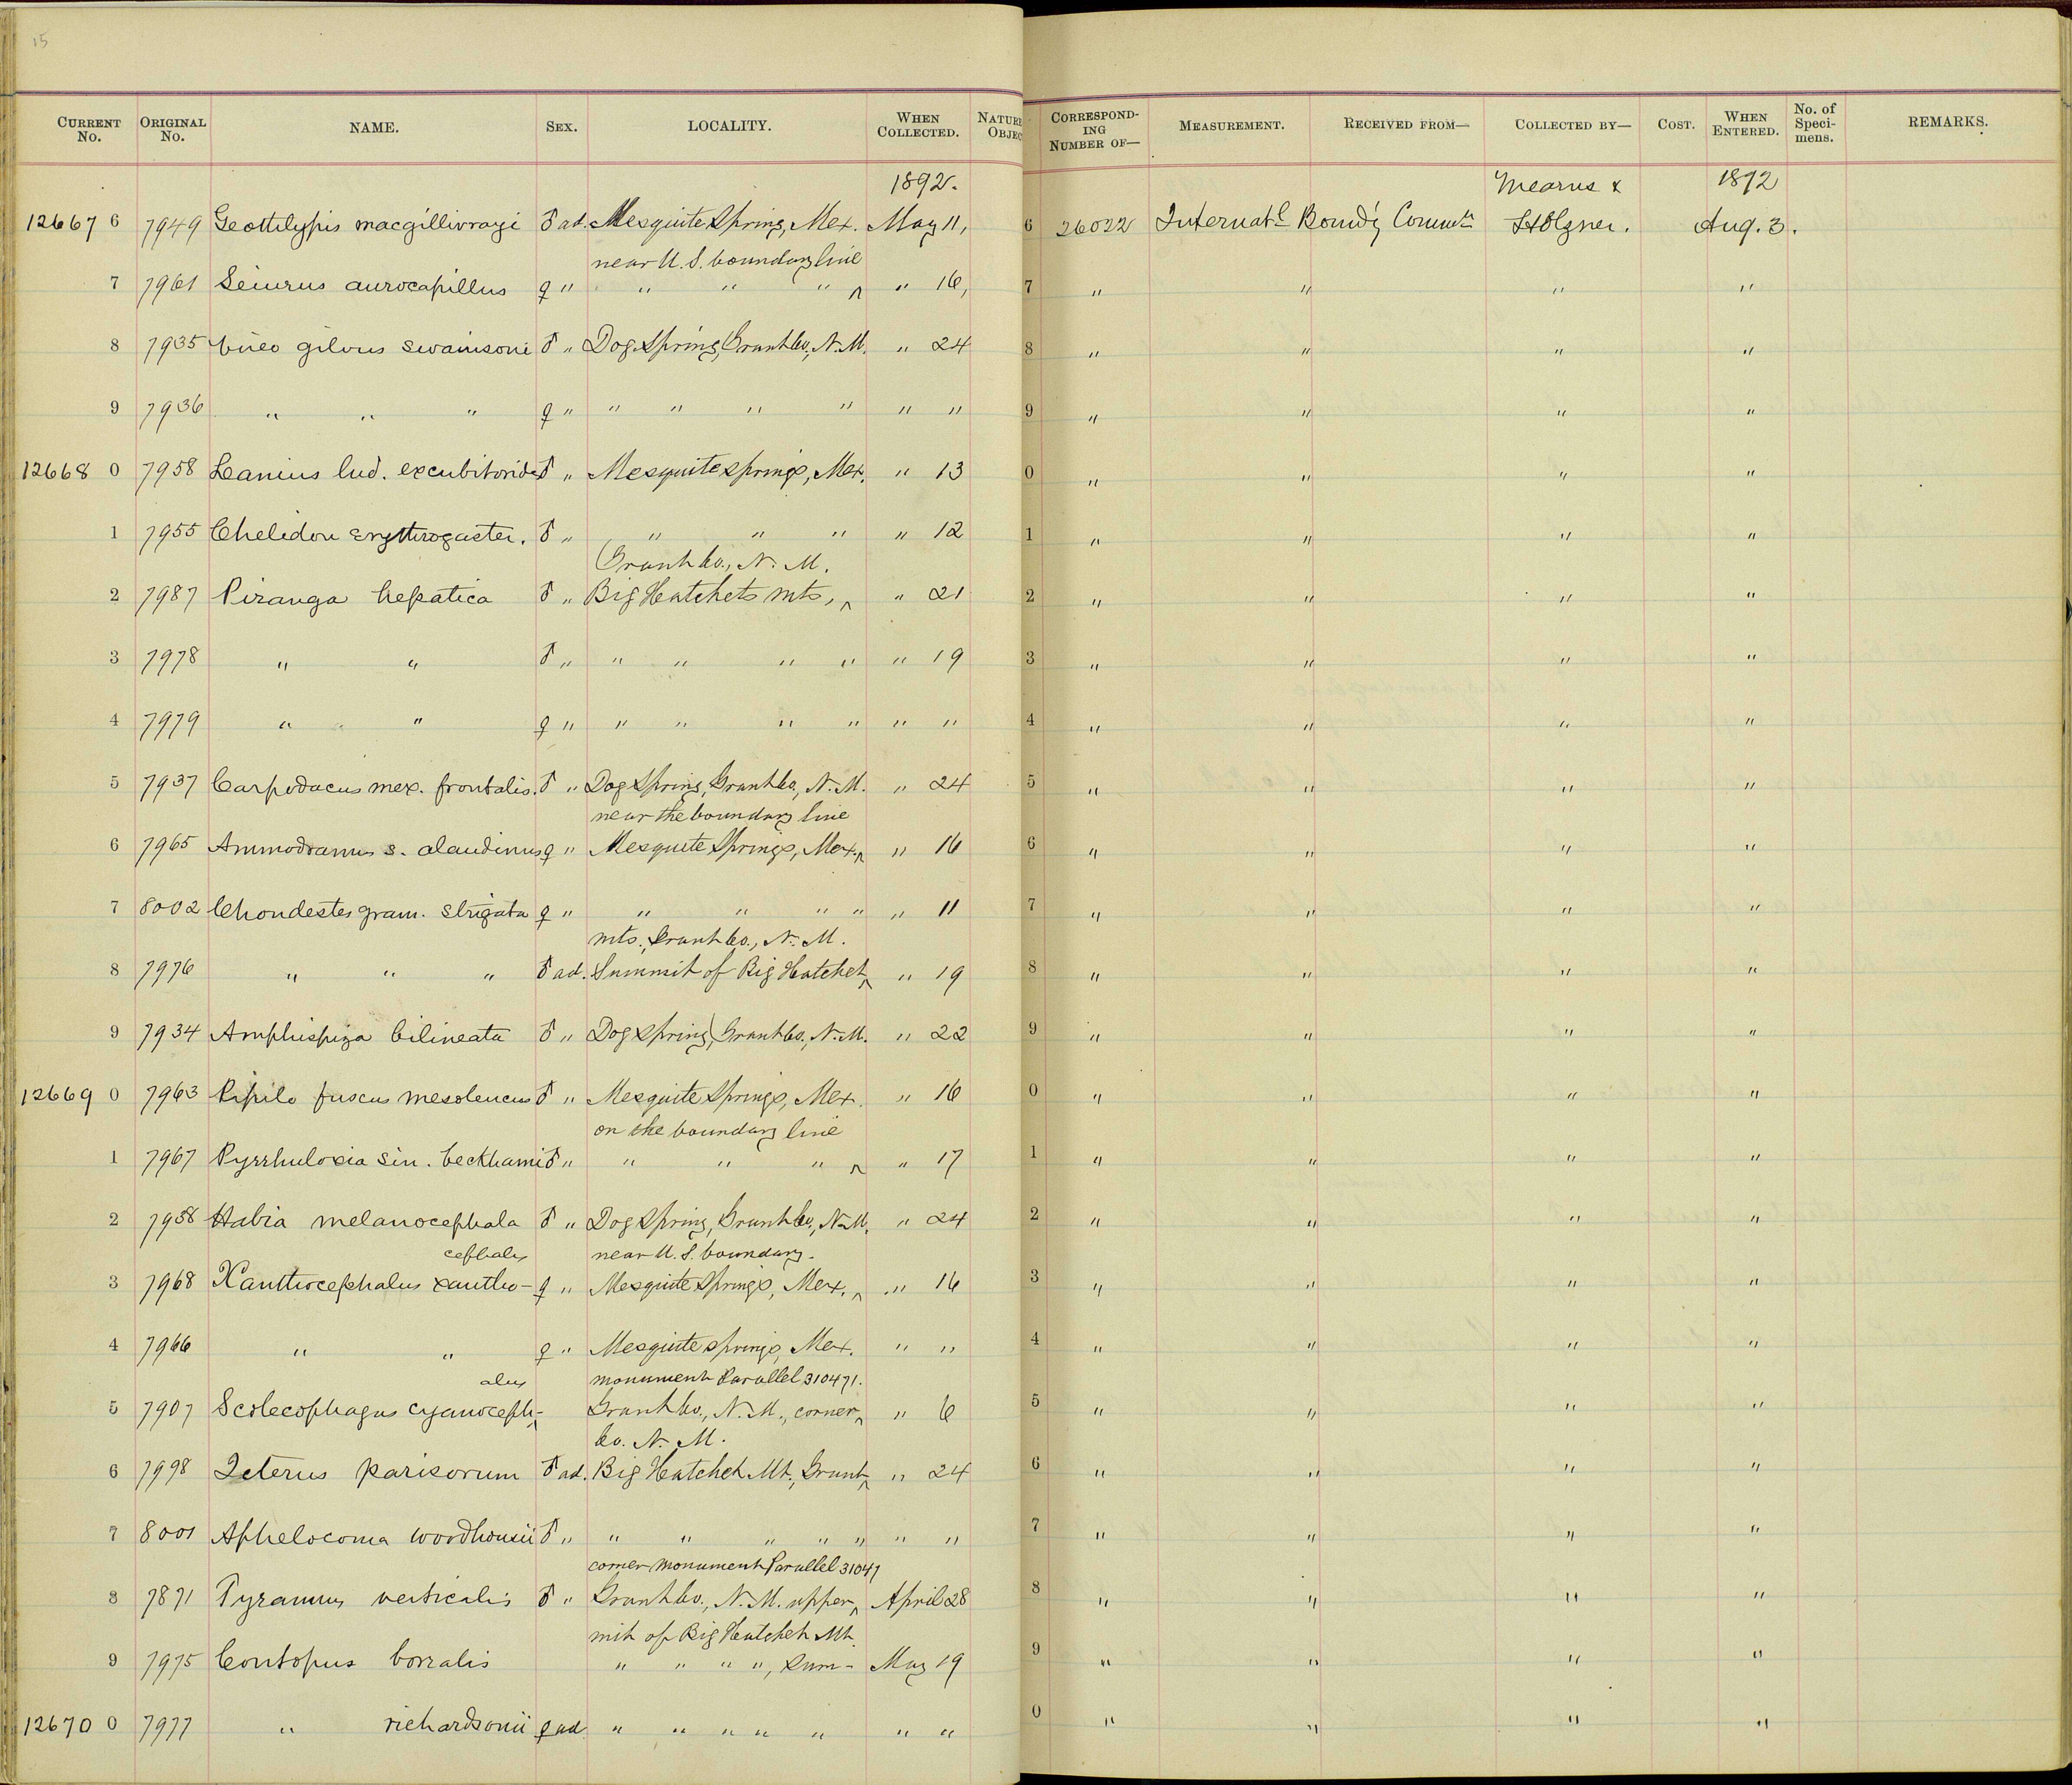 15
CURRENT No. ORIGINAL No. NAME. SEX. LOCALITY. WHEN COLLECTED. NATURE OBJEC CORRESPONDING NUMBER OF— MEASUREMENT. RECEIVED FROM— COLLECTED BY— COST. WHEN ENTERED. No. of Specimens. REMARKS.
1892. Mearns & 1892
12667 6 7949 Geothlypis macgillivrayi ♂ ad. Mesquite Spring, Mex. May 11, 6 26022 Internatl Bound'y Commn Holzner. Aug. 3.
near U.S. boundary line
7 7961 Seiurus aurocapillus ♀ " " " " ^ " 16, 7 " " " "
8 7935 Vireo gilvus swainsoni ♂ " Dog Spring, Grant Co., N.M. " 24 8 " " " "
9 7936 " " " ♀ " " " " " " " 9 " " " "
12668 0 7958 Lanius lud. excubitorides ♂ " Mesquite Springs, Mex. " 13 0 " " " "
1 7955 Chelidon erythrogaster. ♂ " " " " " 12 1 " " " "
Grant Co., N. M.
2 7987 Piranga hepatica ♂ " Big Hatchets mts, ^ " 21 2 " " " "
3 7978 " " ♂ " " " " " " 19 3 " " " "
4 7979 " " ♀ " " " " " " " 4 " " " "
5 7937 Carpodacus mex. frontalis. ♂ " Dog Spring, Grant Co., N.M. " 24 5 " " " "
near the boundary line
6 7965 Ammodramus s. alaudinus ♀ " Mesquite Springs, Mex. ^ " 16 6 " " " "
7 8002 Chondestes gram. strigata ♀ " " " " " " 11 7 " " " "
mts., Grant Co., N. M.
8 7976 " " " ♂ ad. Summit of Big Hatchet ^ " 19 8 " " " "
9 7934 Amphispiza bilineata ♂ " Dog Spring, Grant Co., N.M. " 22 9 " " " "
12669 0 7963 Pipilo fuscus mesoleucus ♂ " Mesquite Springs, Mex. " 16 0 " " " "
on the boundary line
1 7967 Pyrrhuloxia sin. beckhami ♂ " " " " ^ " 17 1 " " " "
2 7938 Habia melanocephala ♂ " Dog Spring, Grant Co., N.M. " 24 2 " " " "
cephalus near U.S. boundary.
3 7968 Xanthocephalus xantho- ♀ " Mesquite Springs, Mex. ^ " 16 3 " " " "
4 7966 " " ♀ " Mesquite Springs, Mex. " " 4 " " " "
alus monument Parallel 310471.
5 7907 Scolecophagus cyanoceph- ^ Grant Co., N. M., corner ^ " 6 5 " " " "
Co. N. M.
6 7998 Icterus parisorum ♂ ad. Big Hatchet Mt., Grant ^ " 24 6 " " " "
7 8001 Aphelocoma woodhousii ♂ " " " " " " " " 7 " " " "
corner monument Parallel 31047
8 7871 Tyrannus verticalis ♂ " Grant Co., N. M. upper ^ April 28 8 " " " "
mit of Big Hatchet Mt.
9 7975 Contopus borealis " " " ", Sum- May 19 9 " " " "
12670 0 7977 " richardsonii ♀ ad " " " " " " " 0 " " " "